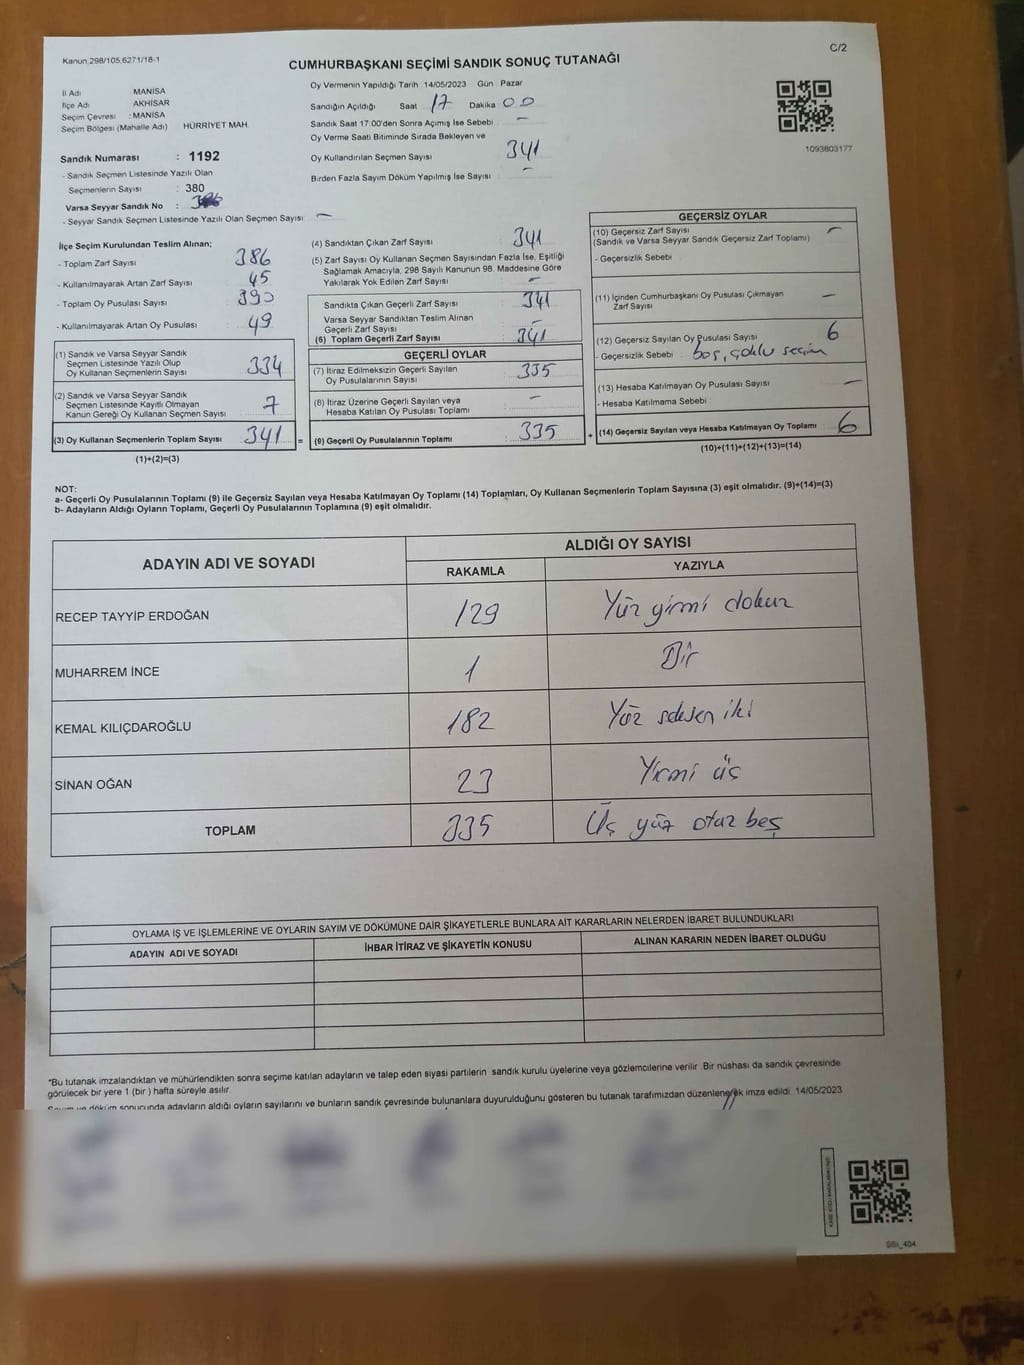 Kanun.298/105,6271/18-1
C/2
CUMHURBAŞKANI SEÇİMİ SANDIK SONUÇ TUTANAĞI
İl Adı MANİSA
İlçe Adı AKHİSAR
Seçim Çevresi : MANİSA
Seçim Bölgesi (Mahalle Adı) HÜRRİYET MAH.
Sandık Numarası : 1192
- Sandık Seçmen Listesinde Yazılı Olan
Seçmenlerin Sayısı : 380
Varsa Seyyar Sandık No :
- Seyyar Sandık Seçmen Listesinde Yazılı Olan Seçmen Sayısı —
Oy Vermenin Yapıldığı Tarih 14/05/2023 Gün : Pazar
Sandığın Açıldığı Saat 17 Dakika 00
Sandık Saat 17.00'den Sonra Açımış İse Sebebi —
Oy Verme Saati Bitiminde Sırada Bekleyen ve
Oy Kullandırılan Seçmen Sayısı 341
Birden Fazla Sayım Döküm Yapılmış İse Sayısı —
1093803177
İlçe Seçim Kurulundan Teslim Alınan;
- Toplam Zarf Sayısı 386
- Kullanılmayarak Artan Zarf Sayısı 45
- Toplam Oy Pusulası Sayısı 390
- Kullanılmayarak Artan Oy Pusulası 49
(1) Sandık ve Varsa Seyyar Sandık
Seçmen Listesinde Yazılı Olup
Oy Kullanan Seçmenlerin Sayısı 334
(2) Sandık ve Varsa Seyyar Sandık
Seçmen Listesinde Kayıtlı Olmayan
Kanun Gereği Oy Kullanan Seçmen Sayısı 7
(3) Oy Kullanan Seçmenlerin Toplam Sayısı 341 =
(1)+(2)=(3)
(4) Sandıktan Çıkan Zarf Sayısı 341
(5) Zarf Sayısı Oy Kullanan Seçmen Sayısından Fazla İse, Eşitliği
Sağlamak Amacıyla, 298 Sayılı Kanunun 98. Maddesine Göre
Yakılarak Yok Edilen Zarf Sayısı —
Sandıkta Çıkan Geçerli Zarf Sayısı 341
Varsa Seyyar Sandıktan Teslim Alınan
Geçerli Zarf Sayısı —
(6) Toplam Geçerli Zarf Sayısı 341
GEÇERLİ OYLAR
(7) İtiraz Edilmeksizin Geçerli Sayılan
Oy Pusulalarının Sayısı 335
(8) İtiraz Üzerine Geçerli Sayılan veya
Hesaba Katılan Oy Pusulası Toplamı —
(9) Geçerli Oy Pusulalarının Toplamı 335 +
GEÇERSİZ OYLAR
(10) Geçersiz Zarf Sayısı —
(Sandık ve Varsa Seyyar Sandık Geçersiz Zarf Toplamı)
- Geçersizlik Sebebi
(11) İçinden Cumhurbaşkanı Oy Pusulası Çıkmayan
Zarf Sayısı —
(12) Geçersiz Sayılan Oy Pusulası Sayısı 6
- Geçersizlik Sebebi : boş, çoklu seçim
(13) Hesaba Katılmayan Oy Pusulası Sayısı —
- Hesaba Katılmama Sebebi :
(14) Geçersiz Sayılan veya Hesaba Katılmayan Oy Toplamı 6
(10)+(11)+(12)+(13)=(14)
NOT:
a- Geçerli Oy Pusulalarının Toplamı (9) ile Geçersiz Sayılan veya Hesaba Katılmayan Oy Toplamı (14) Toplamları, Oy Kullanan Seçmenlerin Toplam Sayısına (3) eşit olmalıdır. (9)+(14)=(3)
b- Adayların Aldığı Oyların Toplamı, Geçerli Oy Pusulalarının Toplamına (9) eşit olmalıdır.
ADAYIN ADI VE SOYADI ALDIĞI OY SAYISI
RAKAMLA YAZIYLA
RECEP TAYYİP ERDOĞAN 129 Yüz yirmi dokuz
MUHARREM İNCE 1 Bir
KEMAL KILIÇDAROĞLU 182 Yüz seksen iki
SİNAN OĞAN 23 Yirmi üç
TOPLAM 335 Üç yüz otuz beş
OYLAMA İŞ VE İŞLEMLERİNE VE OYLARIN SAYIM VE DÖKÜMÜNE DAİR ŞİKAYETLERLE BUNLARA AİT KARARLARIN NELERDEN İBARET BULUNDUKLARI
ADAYIN ADI VE SOYADI İHBAR İTİRAZ VE ŞİKAYETİN KONUSU ALINAN KARARIN NEDEN İBARET OLDUĞU
*Bu tutanak imzalandıktan ve mühürlendikten sonra seçime katılan adayların ve talep eden siyasi partilerin sandık kurulu üyelerine veya gözlemcilerine verilir. Bir nüshası da sandık çevresinde
görülecek bir yere 1 (bir ) hafta süreyle asılır.
Sayım ve döküm sonucunda adayların aldığı oyların sayılarını ve bunların sandık çevresinde bulunanlara duyurulduğunu gösteren bu tutanak tarafımızdan düzenlenerek imza edildi. 14/05/2023
SSI_404